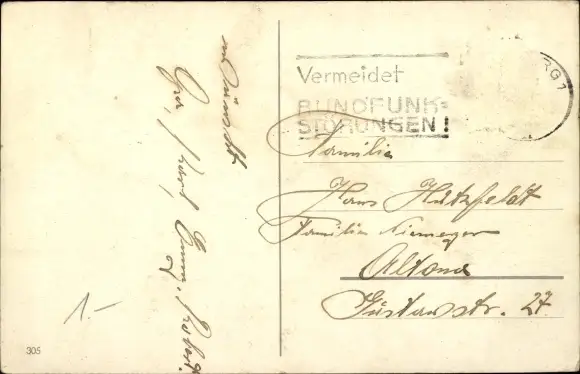 wünscht
Emma, Robert.
Vermeidet
RUNDFUNK=
STÖRUNGEN!
RG 1
Familie
Hans Hatzfeldt
Familie Niemeyer
Altona
Gustavstr. 27
1-
305